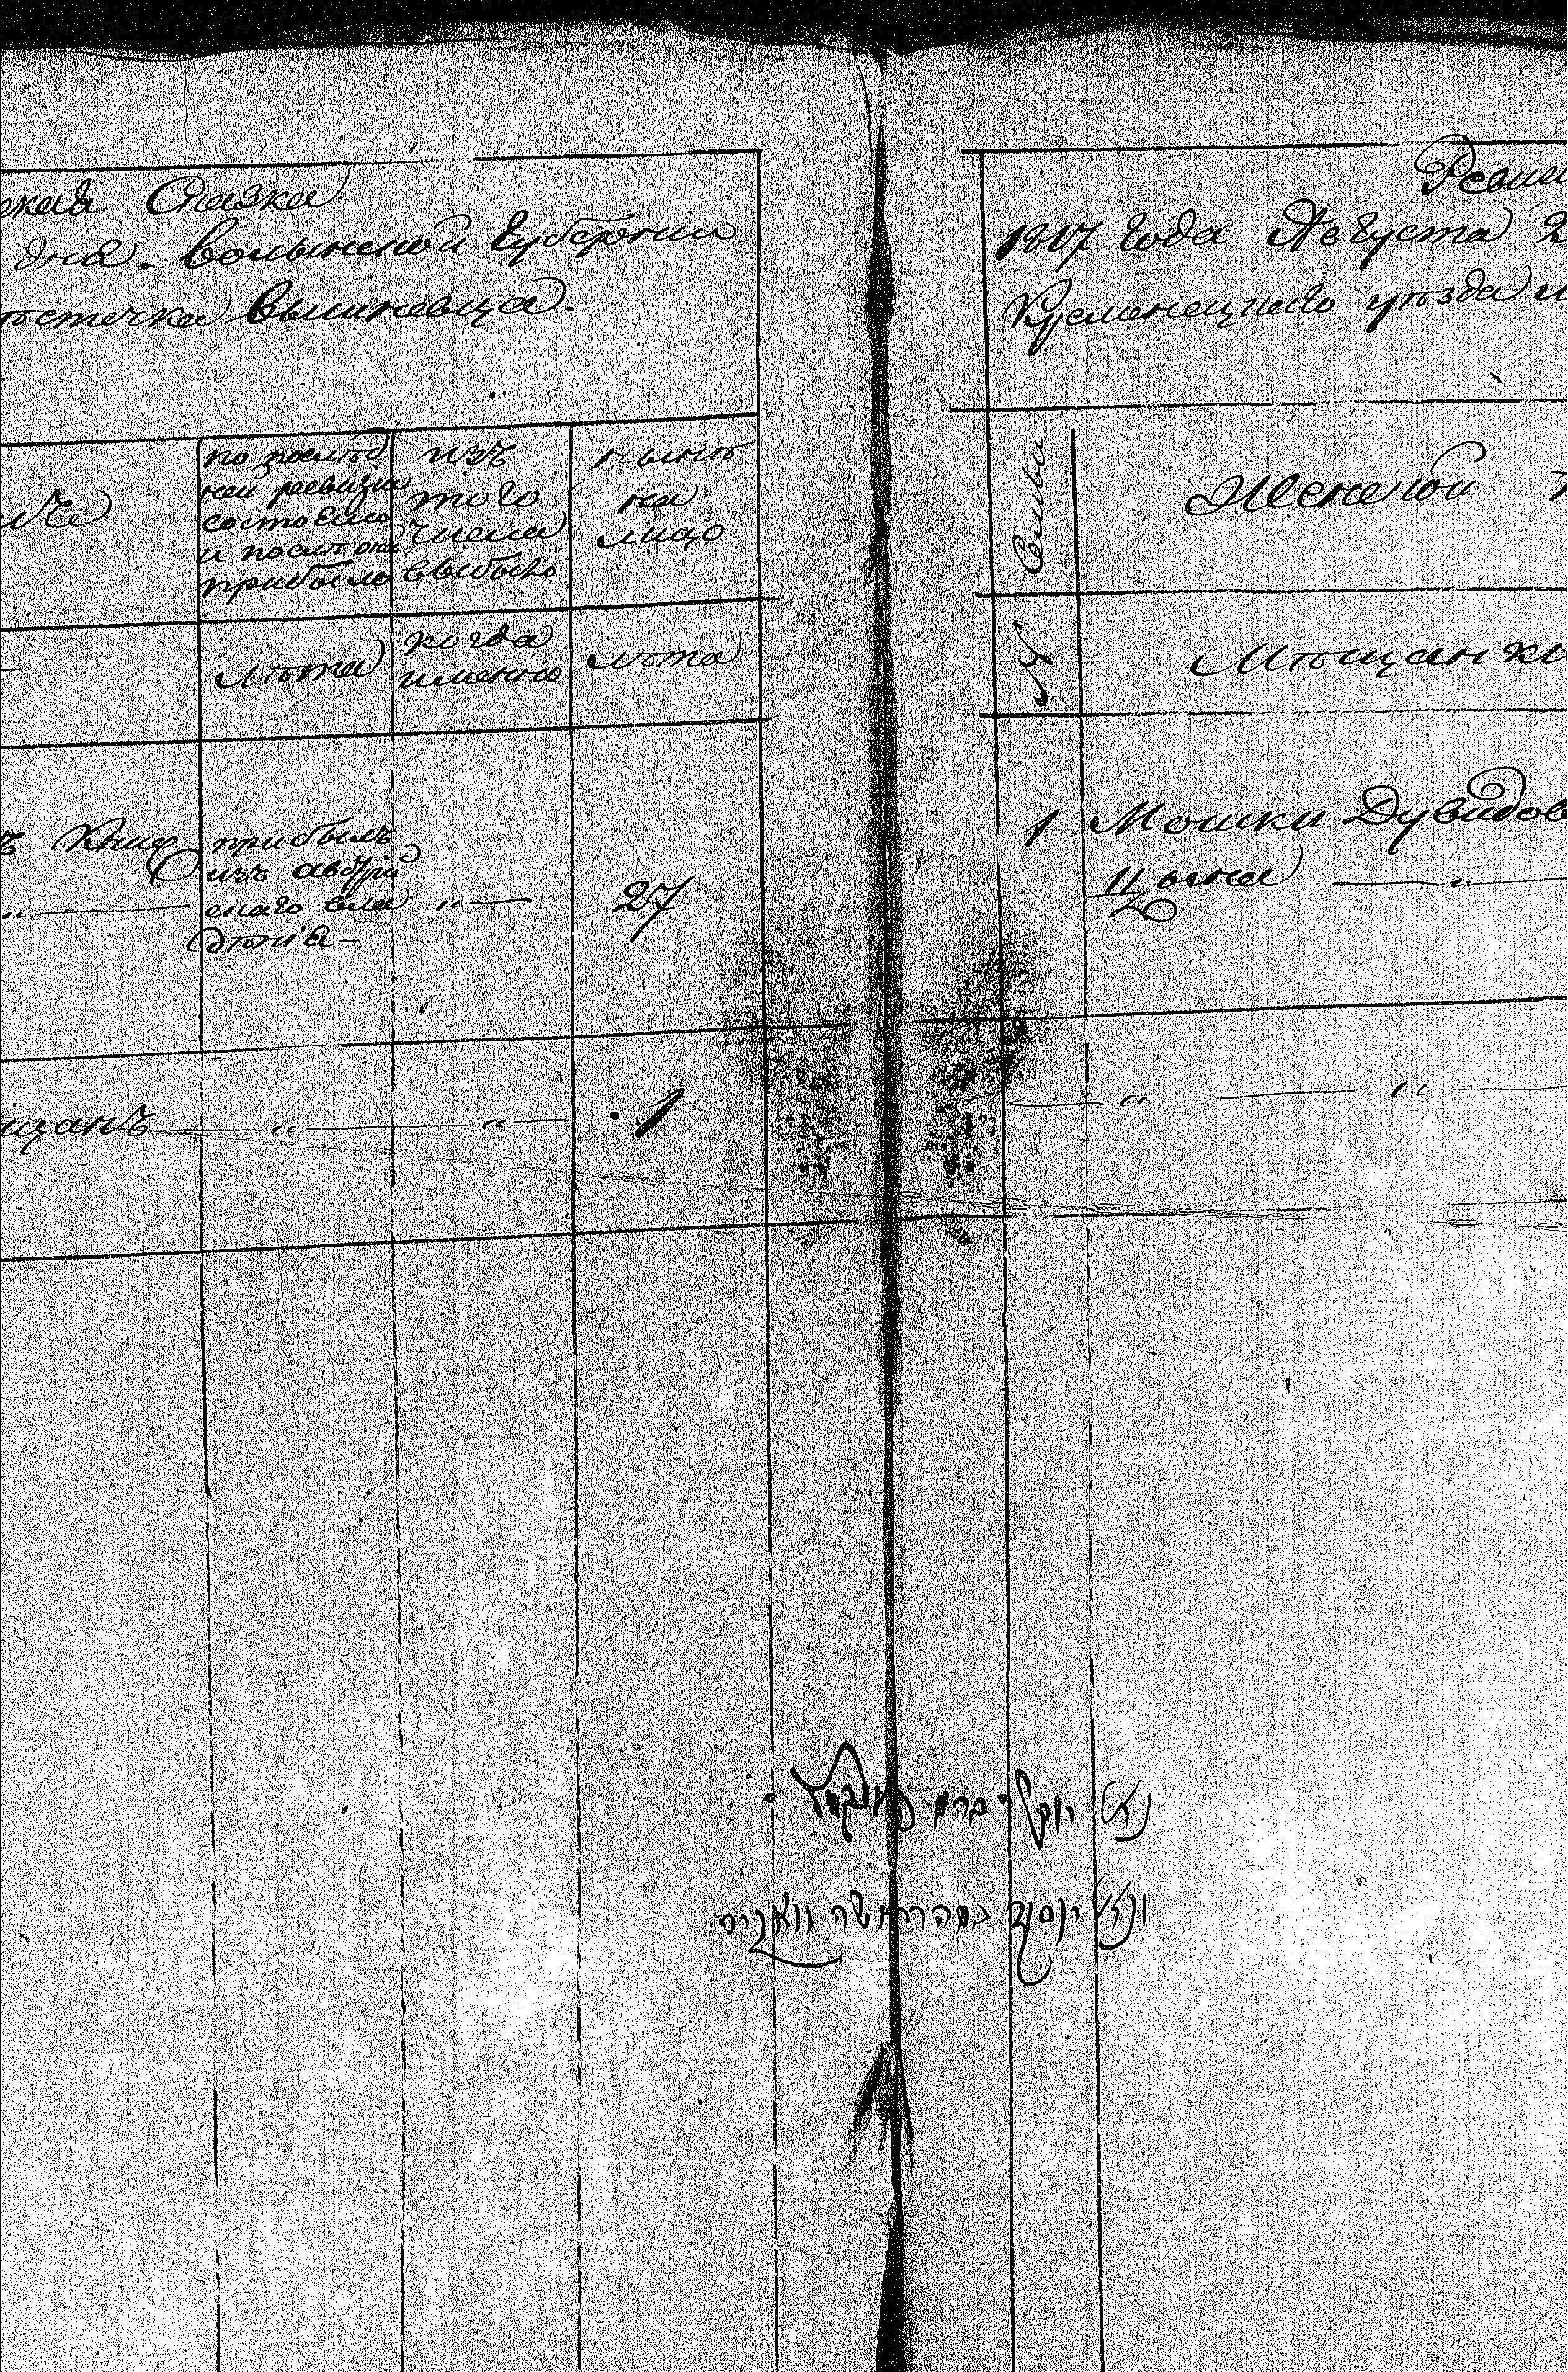 Сказка
дня. Волынской Губернии
местечка Вышневца.
по послед
ней ревизии
состояло
и после оной
прибыло
изъ
того
числа
выбыло
ныне
на
лицо
лѣта
когда
именно
лѣта
прибылъ
изъ австрій
скаго вла
дѣнія —
" —
27
щанъ — " — " — 1
Реви
1817 года Августа 2
Кременецкаго уѣзда м
Семьи
Женской
№
Мѣщанки
1 Мошки Дувидов
Цысна — " —
— " — "
נאו יוקל ברמ
ונאו יוסף במהר משה וואכיס